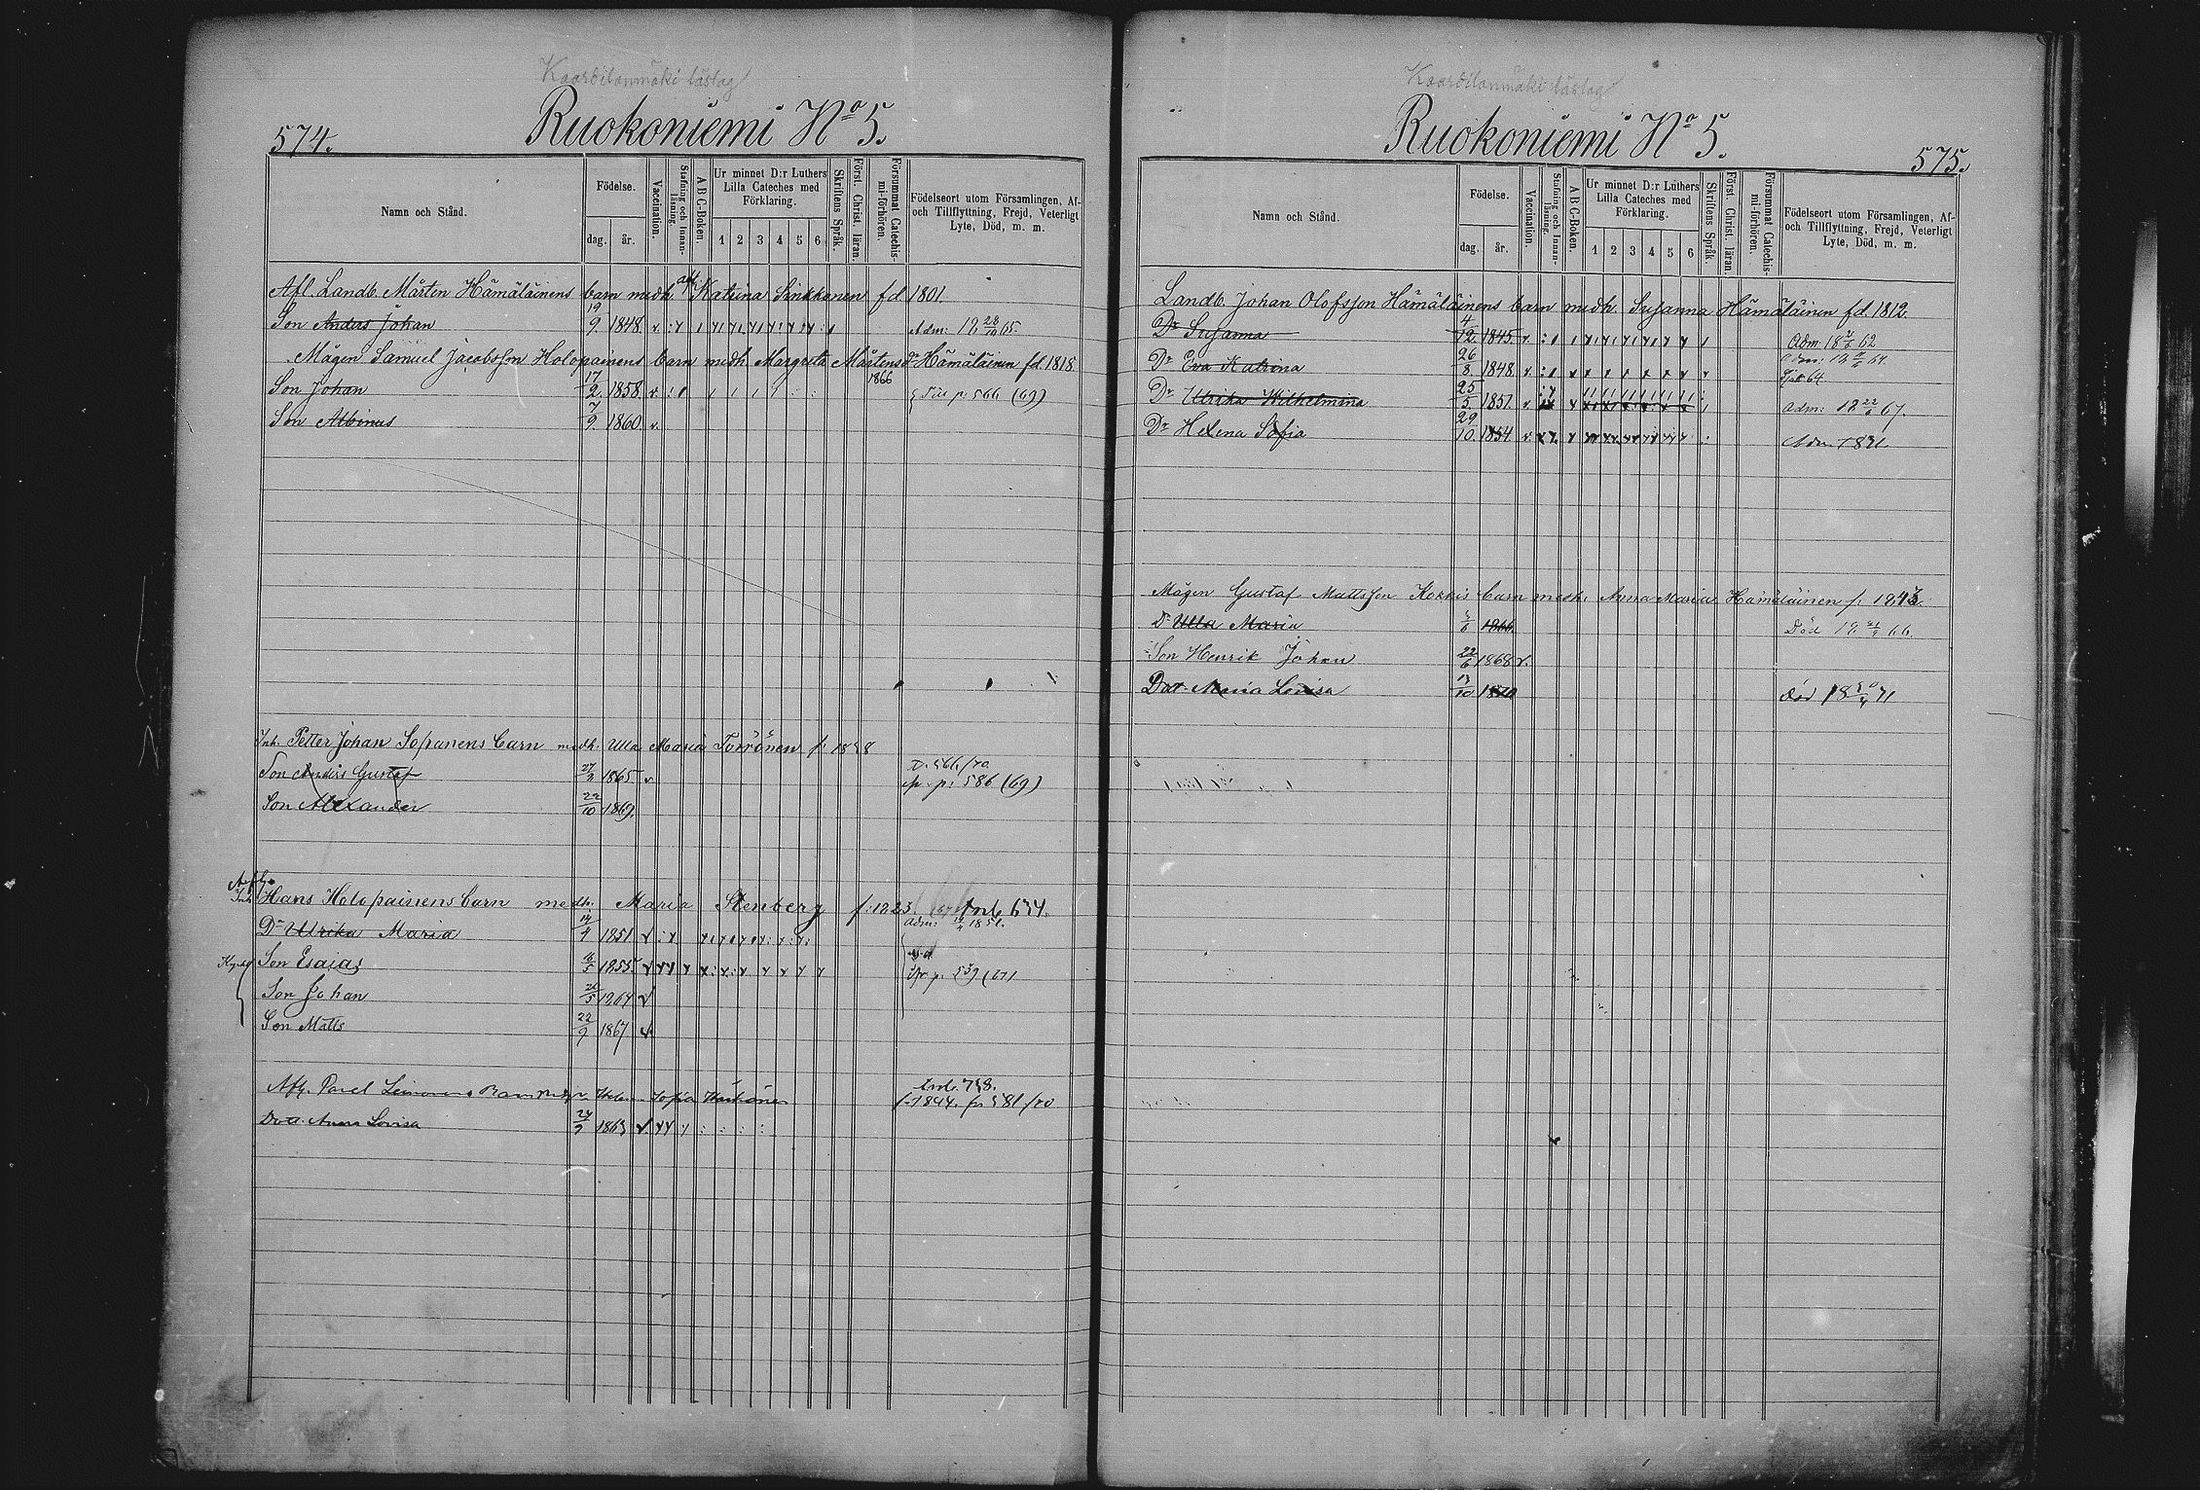 574.
Ruokoniemi No 5.
Namn och Stånd.
Födelse.
dag. år.
Vaccination.
Stafning och Innanläsning.
A B C-Boken.
Ur minnet D:r Luthers Lilla Cateches med Förklaring.
1 2 3 4 5 6
Skriftens Språk.
Först. Christ. läran.
Försummat Catechismi-förhören.
Födelseort utom Församlingen, Af- och Tillflyttning, Frejd, Veterligt Lyte, Död, m. m.
Afl. Landb. Mårten Hämäläinens barn medh. Katrina Sinkkonen fd 1801.
Son Anders Johan 19/9 1848 Adm: 18 28/10 65.
Mågen Samuel Jacobsson Holopainens barn medh. Margreta Mårtensdr Hämäläinen fd. 1818
Son Johan 17/2 1858 1866 p: 566 (69)
Son Albinus 7/9 1860
Inh. Petter Johan Sopanens barn medh. Ulla Maria Torrönen f.
Son Anders Gustaf 27/2 1865 p: 586 (69)
Son Alexander 22/10 1869.
Afl.
Inh. Hans Holopainens barn medh. Maria Stenberg f. 1823. 634.
Dr Ulrika Maria 1851
Son Esaias 1855
Son Johan
Son Matts 22/9 1867
Afl. Pavel Sofia
f. 1844. 581/70
Dott. Anna Lovisa 1863
575.
Ruokoniemi No 5.
Namn och Stånd.
Födelse.
dag. år.
Vaccination.
Stafning och Innanläsning.
A B C-Boken.
Ur minnet D:r Luthers Lilla Cateches med Förklaring.
1 2 3 4 5 6
Skriftens Språk
Först. Christ. läran.
Försummat Catechismi-förhören.
Födelseort utom Församlingen, Af- och Tillflyttning, Frejd, Veterligt Lyte, Död, m. m.
Landb. Johan Olofsson Hämäläinens barn medh. Susanna Hämäläinen fd. 1812
Dr Susanna 4/12 1845 Adm 18 62
Dr Eva Katrina 26/8 1848 Adm: 18 64.
Dr Ulrika Wilhelmina 25/5 1851 Adm: 18 22/6 67.
Dr Helena Sofia 29/10 1854 Adm 1871
Mågen Gustaf Mattsson barn medh. Anna Maria Hämäläinen f. 1843.
Dr Ulla Maria 1866 Död 66.
Son Henrik Johan 22/6 1868
Dotr Maria Lovisa 1870 död 18 71